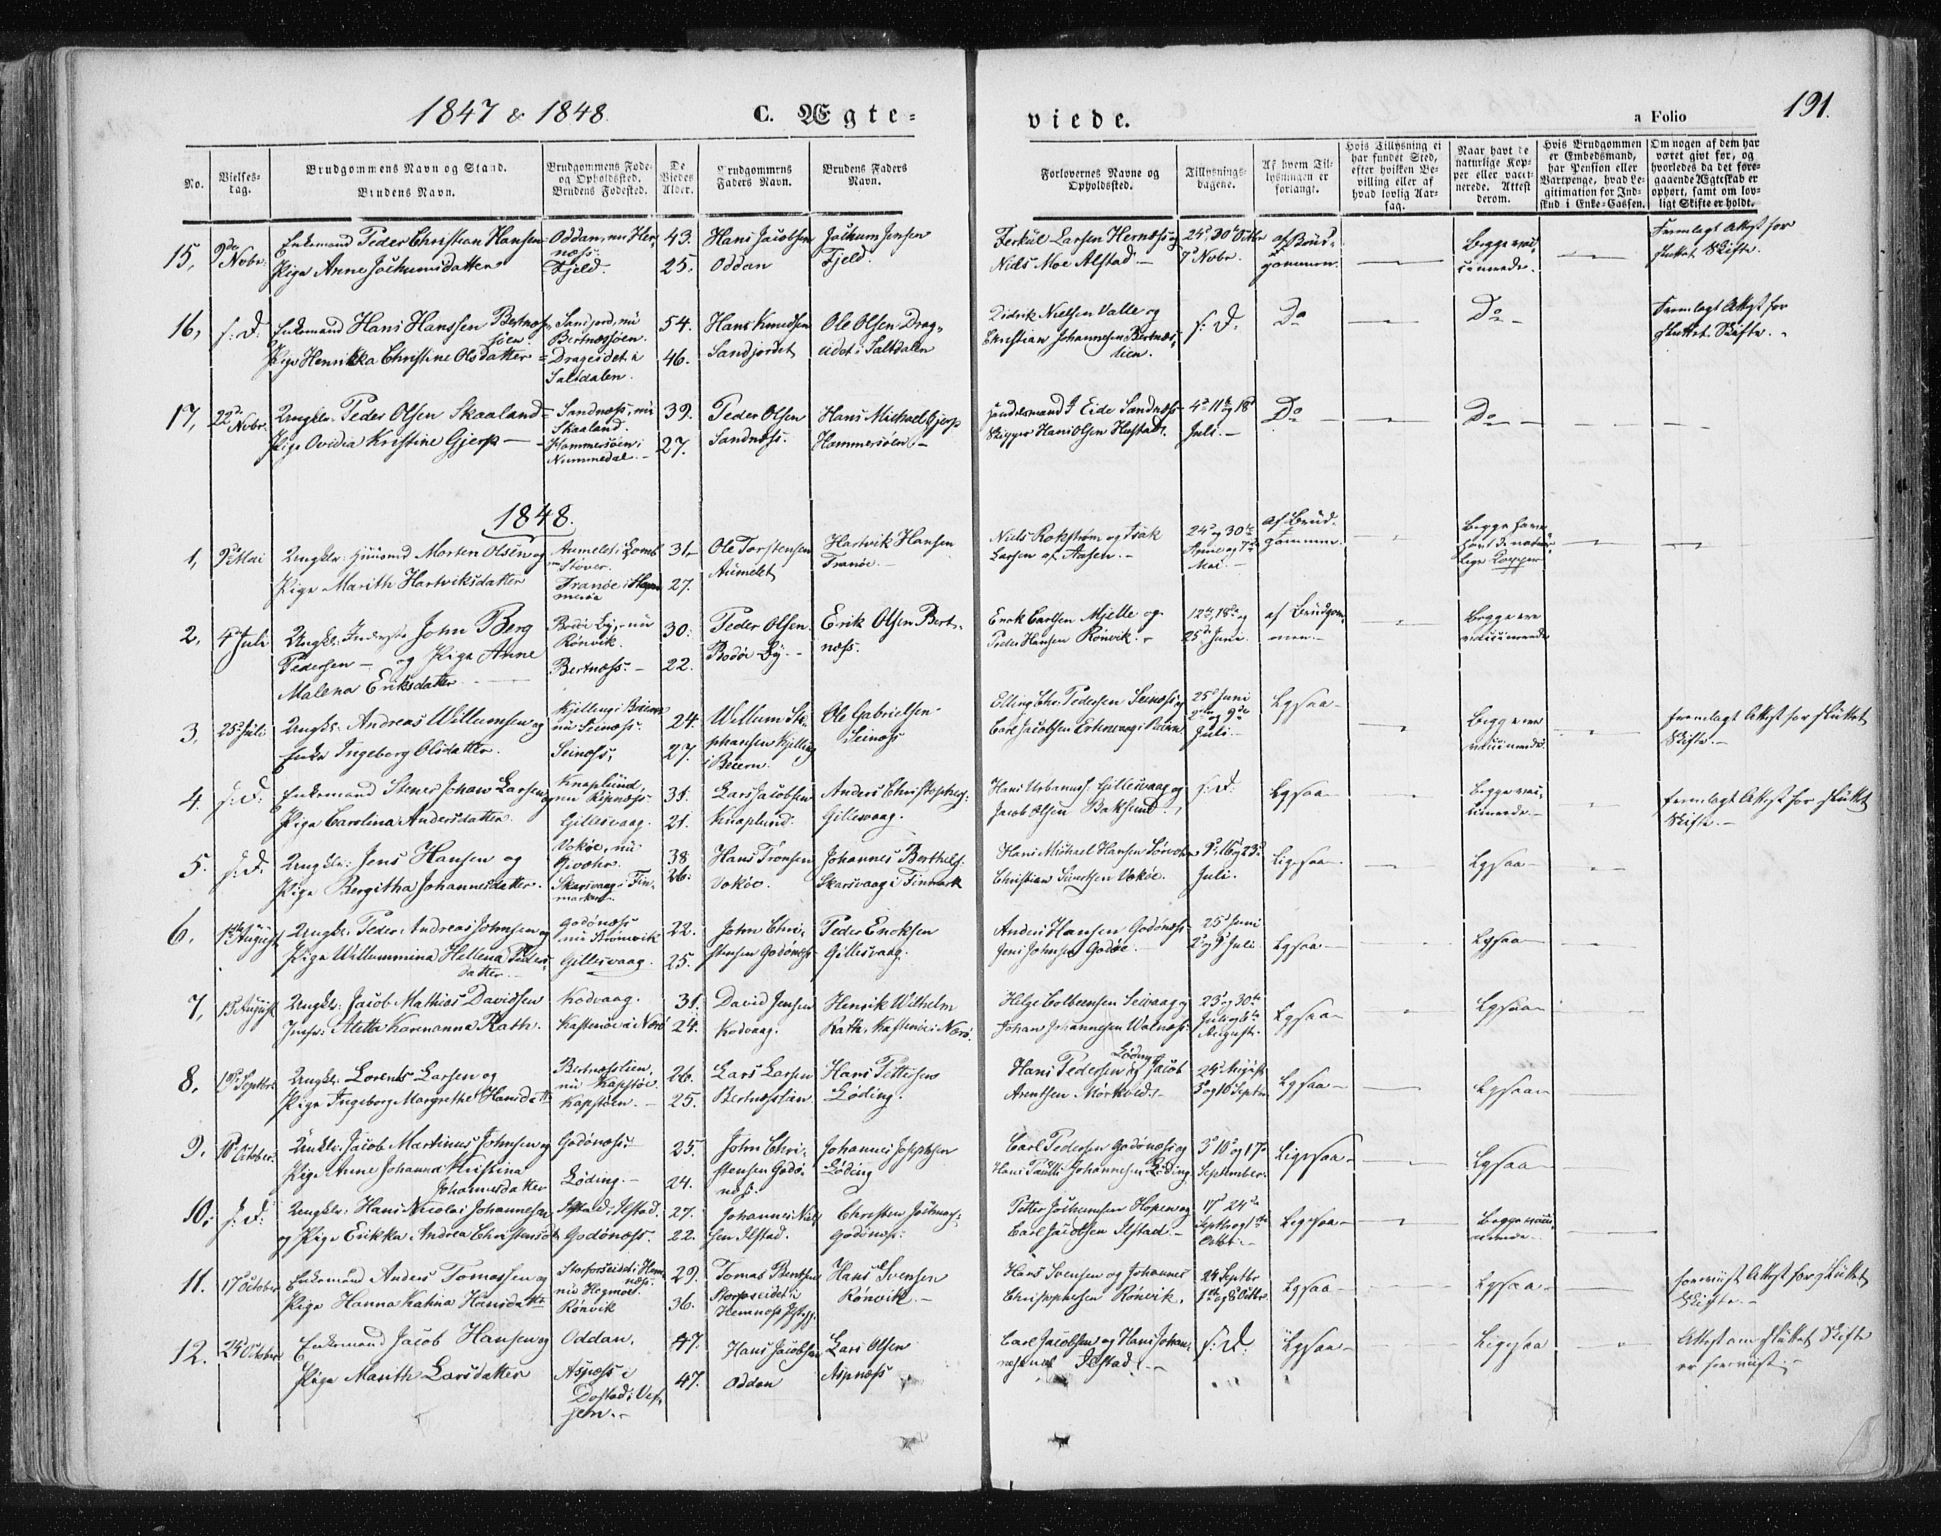 1847 & 1848. C. Ægte-
viede.
a Folio 191.
No.
Vielses-
dag.
Brudgommens Navn og Stand.
Brudens Navn.
Brudgommens Føde-
og Opholdssted.
Brudens Fødested.
De
Viedes
Alder.
Brudgommens
Faders Navn.
Brudens Faders
Navn.
Forlovernes Navne og
Opholdssted.
Tillysnings-
dagene.
Af hvem Til-
lysningen er
forlangt.
Hvis Tillysning ei
har fundet Sted,
efter hvilken Be-
villing eller af
hvad lovlig Aar-
sag.
Naar havt de
naturlige Kop-
per eller vacci-
nerede. Attest
derom.
Hvis Brudgommen
er Embedsmand,
har Pension eller
Vartpenge, hvad Le-
gitimation for Ind-
skud i Enke-Cassen.
Om nogen af dem har
været givt før, og
hvorledes da det fore-
gaaende Ægteskab er
ophørt, samt om lov-
ligt Skifte er holdt.
15, 9de Novbr. Enkemand Peder Christian Hansen
Pige Anne Jochumsdatter
Oddan, nu Her-
næss.
Fjeld.
43.
25.
Hans Jacobsen
Oddan
Jochum Jensen
Fjeld.
Larsen Hernæss og
Niels Moe Alstad —
24d, 30d Octbr
7d Novbr.
af Brud-
gommen.
Begge vac-
cinerede.
Fremlagt Attest for
sluttet Skifte.
16, s. D. Enkemand Hans Hanssen Bertnæs-
søen
Pige Henrikka Christine Olsdatter
Sandjord, nu
Bertnæssøen.
Drageidet i
Saltdalen.
54.
46.
Hans Knudsen
Sandjordet
Ole Olsen Drag-
eidet i Saltdalen
Didrik Nielsen Valle og
Christian Johannesen Bertnæs-
lien.
s. D.
Do
Do
Fremlagt Attest for
sluttet Skifte.
17, 22de Novbr. Ungkr. Peder Olsen Skaaland
Pige Ovidia Kristine Gjerp —
Sandnæss, nu
Skaaland.
Hammersøen i
Nummedal.
39.
27.
Peder Olsen
Sandnæss.
Hans Michael Gjerp
Hammersøen.
Handelsmand J Eide Sandnæss
Skipper Hans Olsen Hustad.
4d 11te og 18d
Juli. —
Do
Do
1848.
1, 9d Mai Ungkr. Huusmd Morten Olsen og
Pige Marith Hartviksdatter
Tranøe i Ham-
merøe
31
27.
Ole Torstensen
Hartvik Hansen
Tranøe.
Niels Rokstrøm og Isak
Larsen af Aasen. —
24d og 30te
7de
Mai. —
af Brud-
gommen.
Begge have
havt de natur-
lige Kopper
2, 4d Juli Ungkr. Inderst John Berg
Pedersen — og Pige Anne
Malena Eriksdatter
Bodø By, nu
Rønvik.
Bertnæss. —
30.
22.
Peder Olsen
Bodøe By. —
Erik Olsen Bert-
næss.
Erik Carlsen Mjelle og
Peder Hansen Rønvik.
12te, 18de og
25de Juni.
af Brudgom-
men.
Begge ere
vaccinerede
3, 25d Juli Ungkr. Andreas Willumsen og
Enke Ingeborg Olsdatter.
Kjelling i Beiern
nu Seinæss.
Seinæss.
24.
27.
Willum Ste-
phansen Kjelling
i Beiern.
Ole Gabrielsen
Seinæss
Elling Chr. Pedersen Seinæss og
Carl Jacobsen
25d Juni
2den og 9de
Juli.
Lgsaa
Begge ere
vaccinerede.
Fremlagt Attest for sluttet
Skifte. —
4. s. D. Enkemand Stener Johan Larsen og
Pige Carolina Andersdatter.
Knaplund,
nu Ripnæss.
Gillesvaag.
31.
21.
Lars Jacobsen
Knaplund.
Anders Christophers.
Gillesvaag.
Hans Urbanuss. Gillesvaag og
Jacob Olsen Baksund.
s. D.
Lgsaa
Begge vac-
cinerede.
Fremlagt Attest for sluttet
Skifte. —
5. s. D. Ungkr. Jens Hansen og
Pige Bergitha Johannesdatter.
Vokøe, nu
Skarsvaag i Fin-
marken
38
26.
Hans Tronsen
Vokøe.
Johannes Berthels:
Skarsvaag i Finmark
Hans Michael Hansen
Christian Sivertsen Vokøe.
9d, 16 og 23d
Juli.
Ligesaa
Lgsaa
6. August Ungkr. Peder Andreas Johnsen og
Pige Willummina Hellena Peders-
datter.
Godønæss
nu Strømvik
Gillesvaag.
22.
25.
John Chri-
stensen Godønæss
Peder Ericksen
Gillesvaag.
Anders Hansen Godønæss
Jens Johnsen Godøe.
25d Juni
2d og 9d Juli.
Lgsaa
Lgsaa
7, 15 August Ungkr. Jacob Mathias Davidsen
Jmfr. Aletta Karenanna Rath.
Kodvaag.
Kastenøe i Nærø
31.
24.
David Jensen
Kodvaag.
Henrik Wilhelm
Rath, Kastenøe i Nærø.
Helge Colbeensen Seivaag og
Johan Johannesen Walnæss.
23d og 30te
Juli og 6te
August.
Lgsaa
Lgsaa
8, Septbr. Ungkr. Lorents Larsen og
Pige Ingeborg Margrethe Hansdtr
Bertnæsslien,
nu Kapstøe.
Kapstøen.
26.
25.
Lars Larsen
Bertnæsslien
Hans Pettersen
Løding.
Hans Pedersen Løding og Jacob
Arentsen Mørkved. —
24d August
3d og 10 Septbr
Lgsaa
Lgsaa
9. October. Ungkr. Jacob Martinus Johnsen og
Pige Anne Johanna Kristina
Johannesdatter
Godønæss.
Løding. —
25.
24.
John Chri-
stensen Godø-
næs.
Johannes Josephsen
Løding
Carl Pedersen Godønæss og
Hans Paulli Johannesen Løding
3d 10d og 17d
September.
Ligesaa
Lgsaa
10. s. D. Ungkr. Hans Nicolai Johannesen
og Pige Erikka Andrea Christensdtr
Ilstad.
Godønæss.
27.
22.
Johannes Niel-
sen Ilstad.
Christen Jochums:
Godønæss.
Petter Jochumsen Hopen og
Carl Jacobsen Ilstad. —
17d 24de
Septbr og 1ste
Octbr. —
Ligesaa
Begge vacci-
nerede.
11. 17d October Enkemand Anders Tomassen og
Pige Hanna Katrina Hansdtr
Storforseidet i Hem-
næss.
nu Hegmoe
Rønvik
29.
36.
Tomas Bentsen
Storforseidet i
Hemnæss
Hans Svensen
Rønvik. —
Hans Svensen og Johannes
Christophersen Rønvik.
24 Septbr
1ste og 8 Octbr.
Lgsaa
Lgsaa
Foreviist Attest for sluttet
Skifte. —
12. 24d October Enkemand Jacob Hansen og
Pige Marith Larsdatter
Oddan.
Aspnæss i
Dolstad i Vef-
sen. —
47.
47.
Hans Jacobsen
Oddan
Lars Olsen
Aspnæss
Carl Jacobsen og Hans Johan-
nessen Ilstad. —
s. D.
Lgsaa
Ligesaa
Attest om sluttet Skifte
er foreviist. —